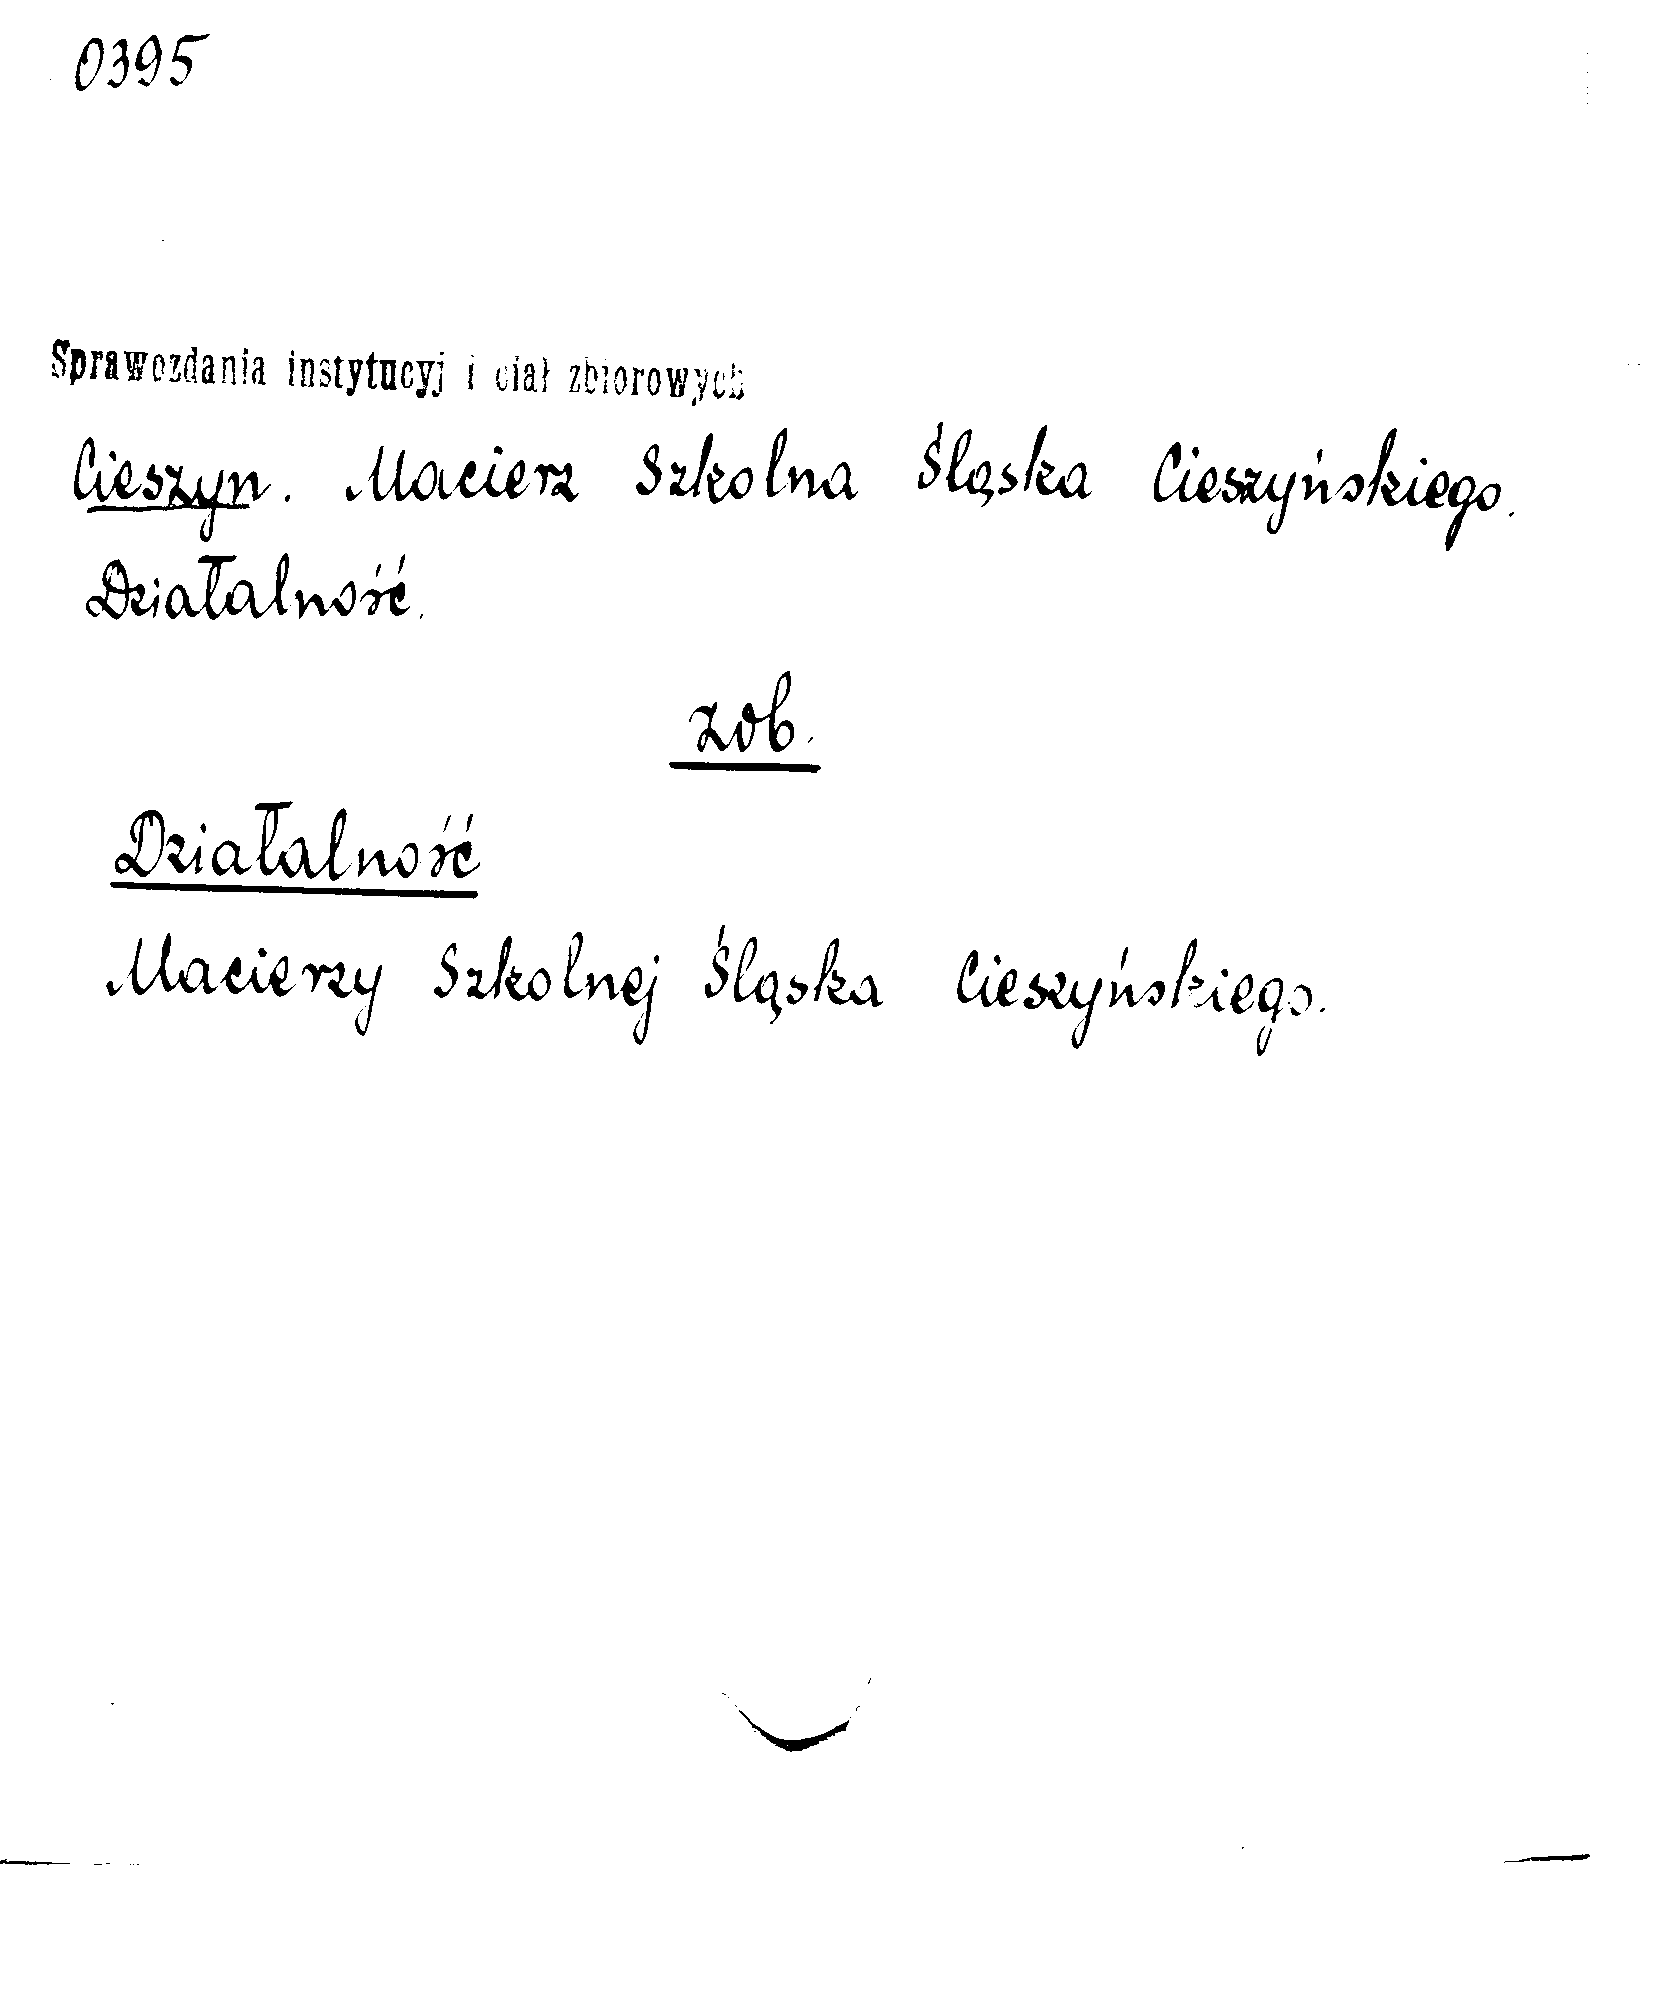 0395
Sprawozdania instytucyj i ciał zbiorowych
Cieszyn. Macierz Szkolna Śląska Cieszyńskiego.
Działalność.
zob.
Działalność
Macierzy Szkolnej Śląska Cieszyńskiego.